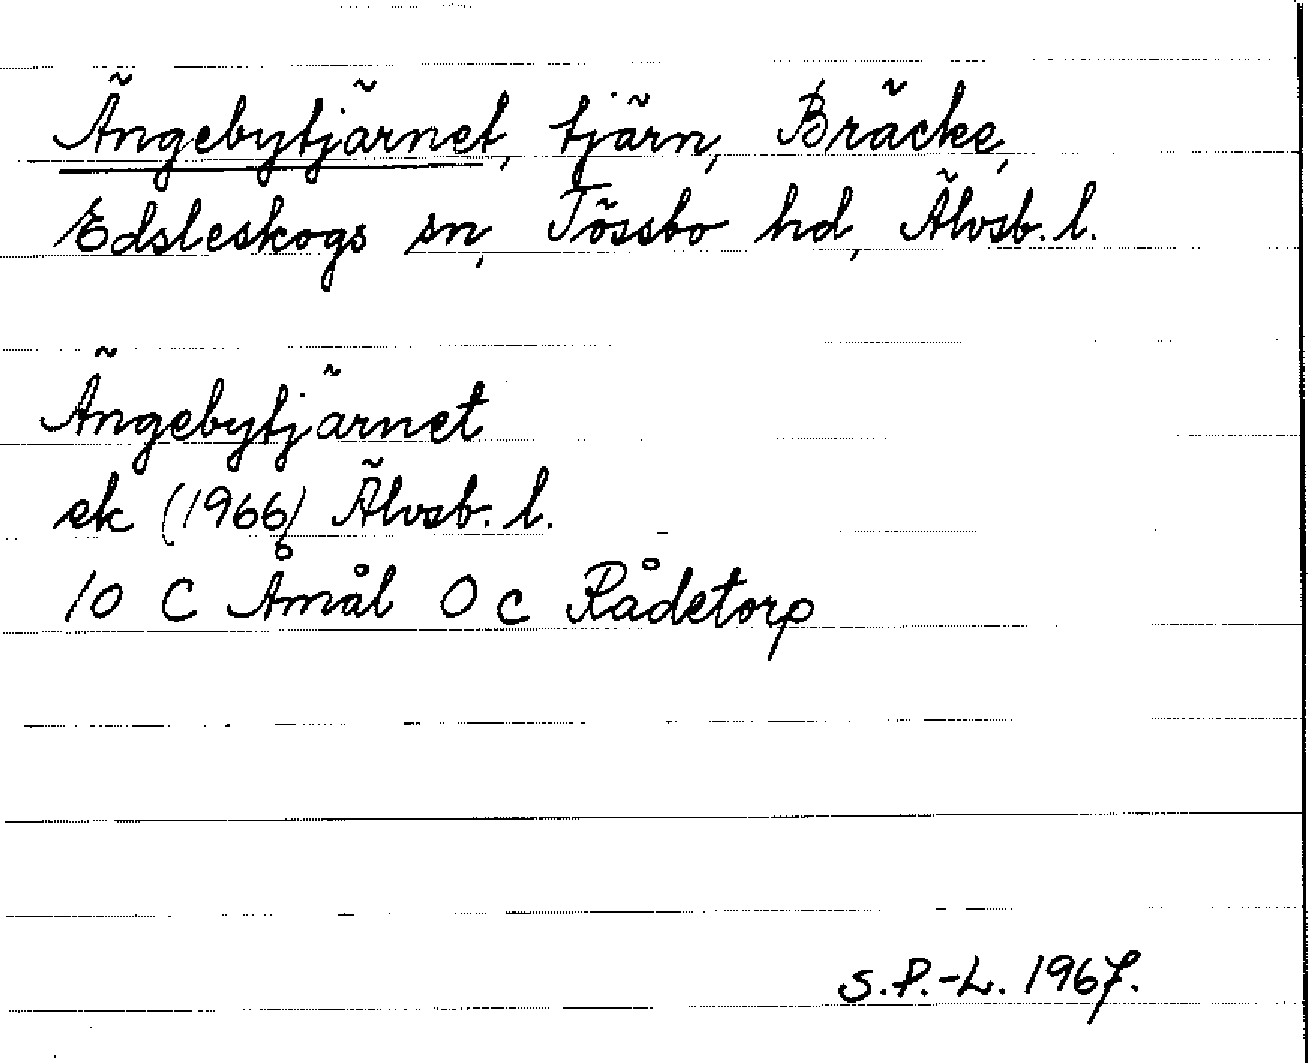 Ängebytjärnet, tjärn, Bräcke,
Edsleskogs sn, Tössbo hd, Älvsb. l.
Ängebytjärnet
ek (1966) Älvsb. l.
10 C Åmål 0 c Rådetorp
S.P.-L. 1967.